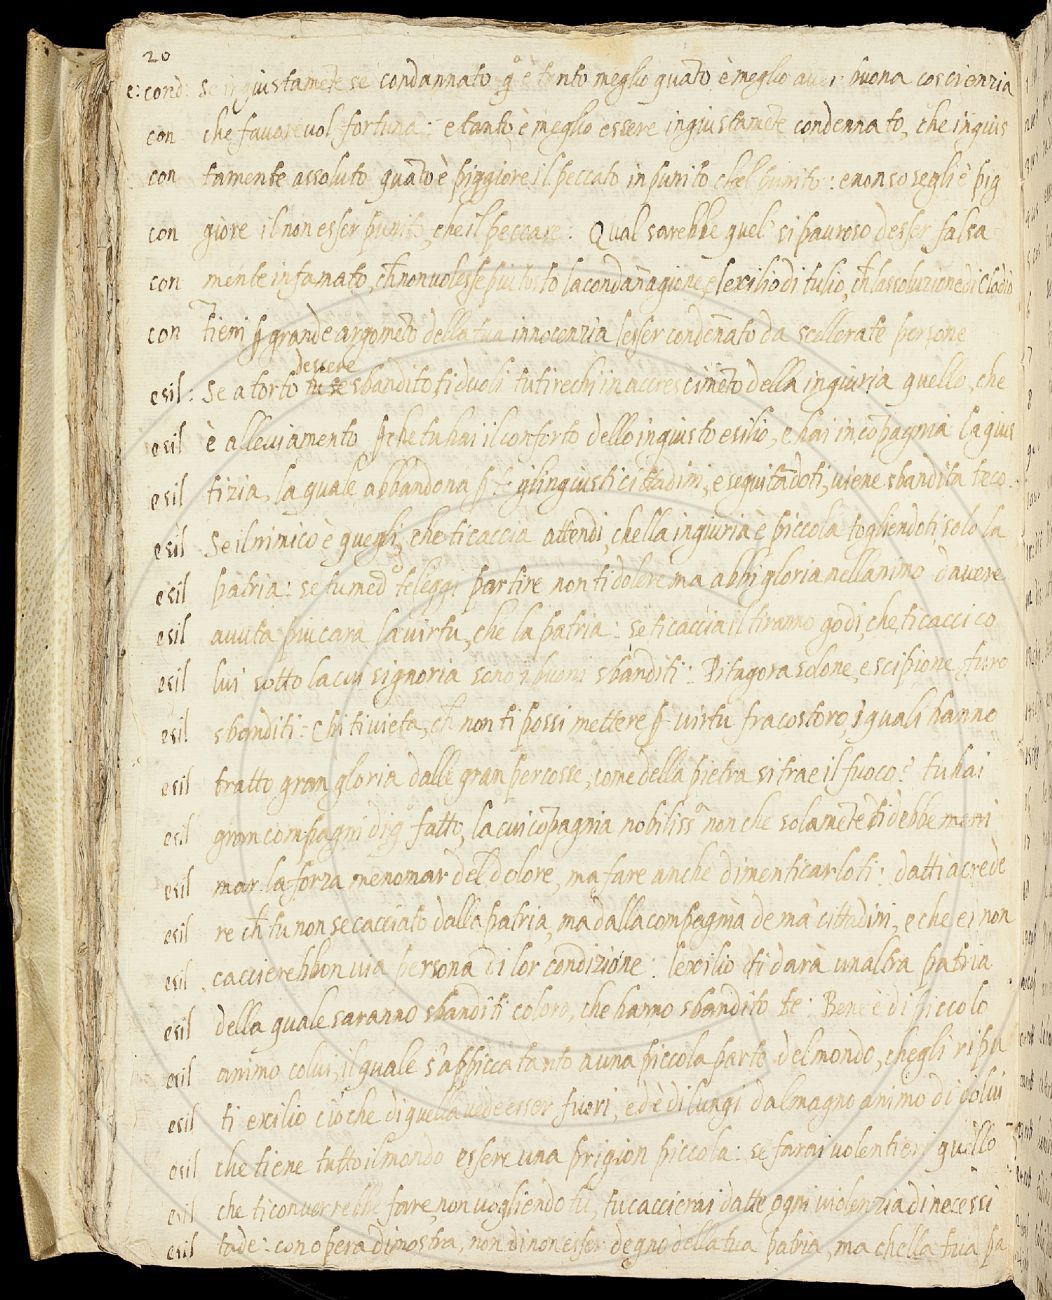 20
e: cond: se ingiustamēte se condannato q.º è tanto meglio quāto è meglio aver buona coscienzia
con che favorevol fortuna: e tanto è meglio essere ingiustamēte condennato, che ingius
con tamente assoluto quāto è piggiore il peccato inpunito chel punito: e non so segli è pig
con giore il non esser punito, che il peccare: Qual sarebbe quel sì pauroso desser falsa
con mente infamato, ch̄ non volesse piu tosto la condānagione, e lexilio di tulio, ch̄ lassoluzione di Clodio
con tieni p̱ grande argomēto della tua innocenzia lesser condēnato da scellerate persone
dessere
esil: Se a torto tu se sbandito ti duoli tu ti rechi in accrescimēto della ingiuria quello, che
esil è alleviamento p̱che tu hai il conforto dello ingiusto esilio, e hai in cōpagnia la gius
esil tizia, la quale abbandona gl'ingiusti cittadini, e seguitādoti, viene sbandita teco.
esil Se il nimico è quegli, che ti caccia attendi, chella ingiuria è piccola togliendoti solo la
esil patria: se tu med.º te leggi partire non ti dolere ma abbi gloria nellanimo davere
esil avuta piu cara la virtu, che la patria: se ti caccia il tiranno godi, che ti cacci co
esil lui sotto la cui signoria sono i buoni sbanditi: Pitagora solone, e scipione furo
esil sbanditi: Chi ti vieta, ch̄ non ti possi mettere p̱ virtu fra costoro i quali hanno
esil tratto gran gloria dalle gran percosse, come della pietra si trae il fuoco? tu hai
esil gran compagni di q.º fatto, la cui cōpagnia nobiliss.ª non che solamēte ti debbe meni
esil mar la forza menomar del dolore, ma fare anche dimenticarloti: datti a crede
esil re ch̄ tu non se cacciato dalla patria, ma dalla compagnia de ma' cittadini, e che ei non
esil caccierebbon via persona di lor condizione: lexilio ti darà unaltra patria
esil della quale saranno sbanditi coloro, che hanno sbandito te: Bene è di piccolo
esil animo colui, il quale s'appicca tanto a una piccola parte del mondo, chegli ripu
esil ti exilio ciò che di quella vede esser fuori, ed è di lungi dal magno animo di colui
esil che tiene tutto il mondo essere una prigion piccola: se farai volentieri quello
esil che ti converrebbe fare, non vogliendo tu, tu caccierai da tte ogni violenzia di necessi
esil tade: con opera dimostra, non di non esser degno della tua patria, ma chella tua pa